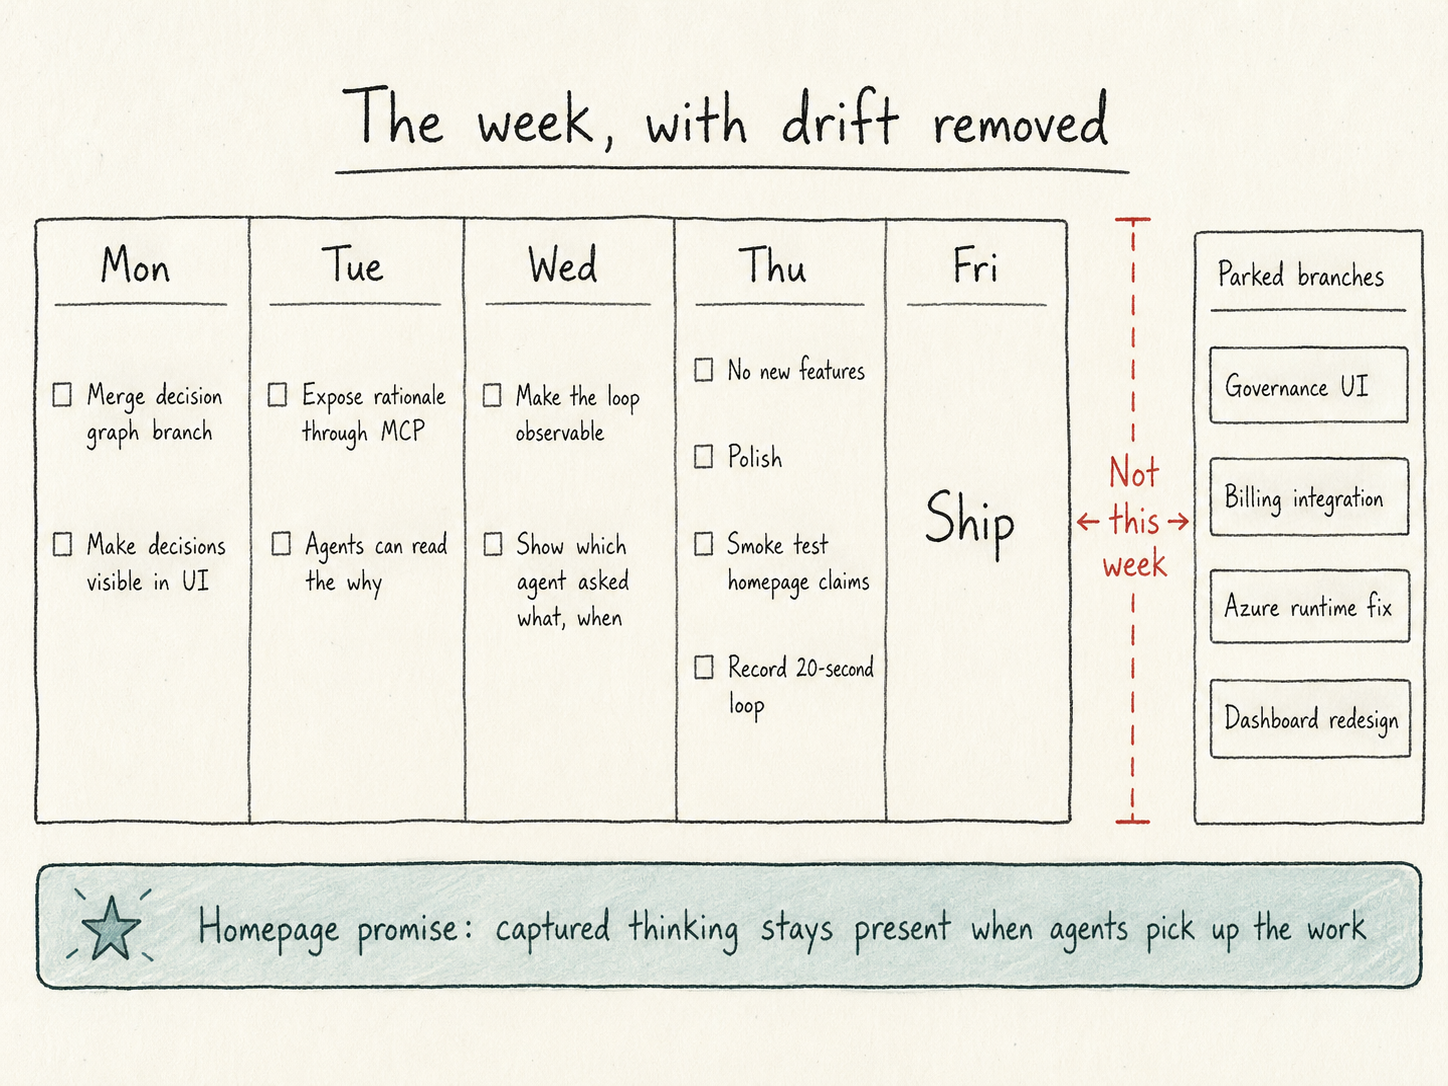 The week, with drift removed
Mon
Merge decision
graph branch
Make decisions
visible in UI
Tue
Expose rationale
through MCP
Agents can read
the why
Wed
Make the loop
observable
Show which
agent asked
what, when
Thu
No new features
Polish
Smoke test
homepage claims
Record 20-second
loop
Fri
Ship
Not
this
week
Parked branches
Governance UI
Billing integration
Azure runtime fix
Dashboard redesign
Homepage promise: captured thinking stays present when agents pick up the work